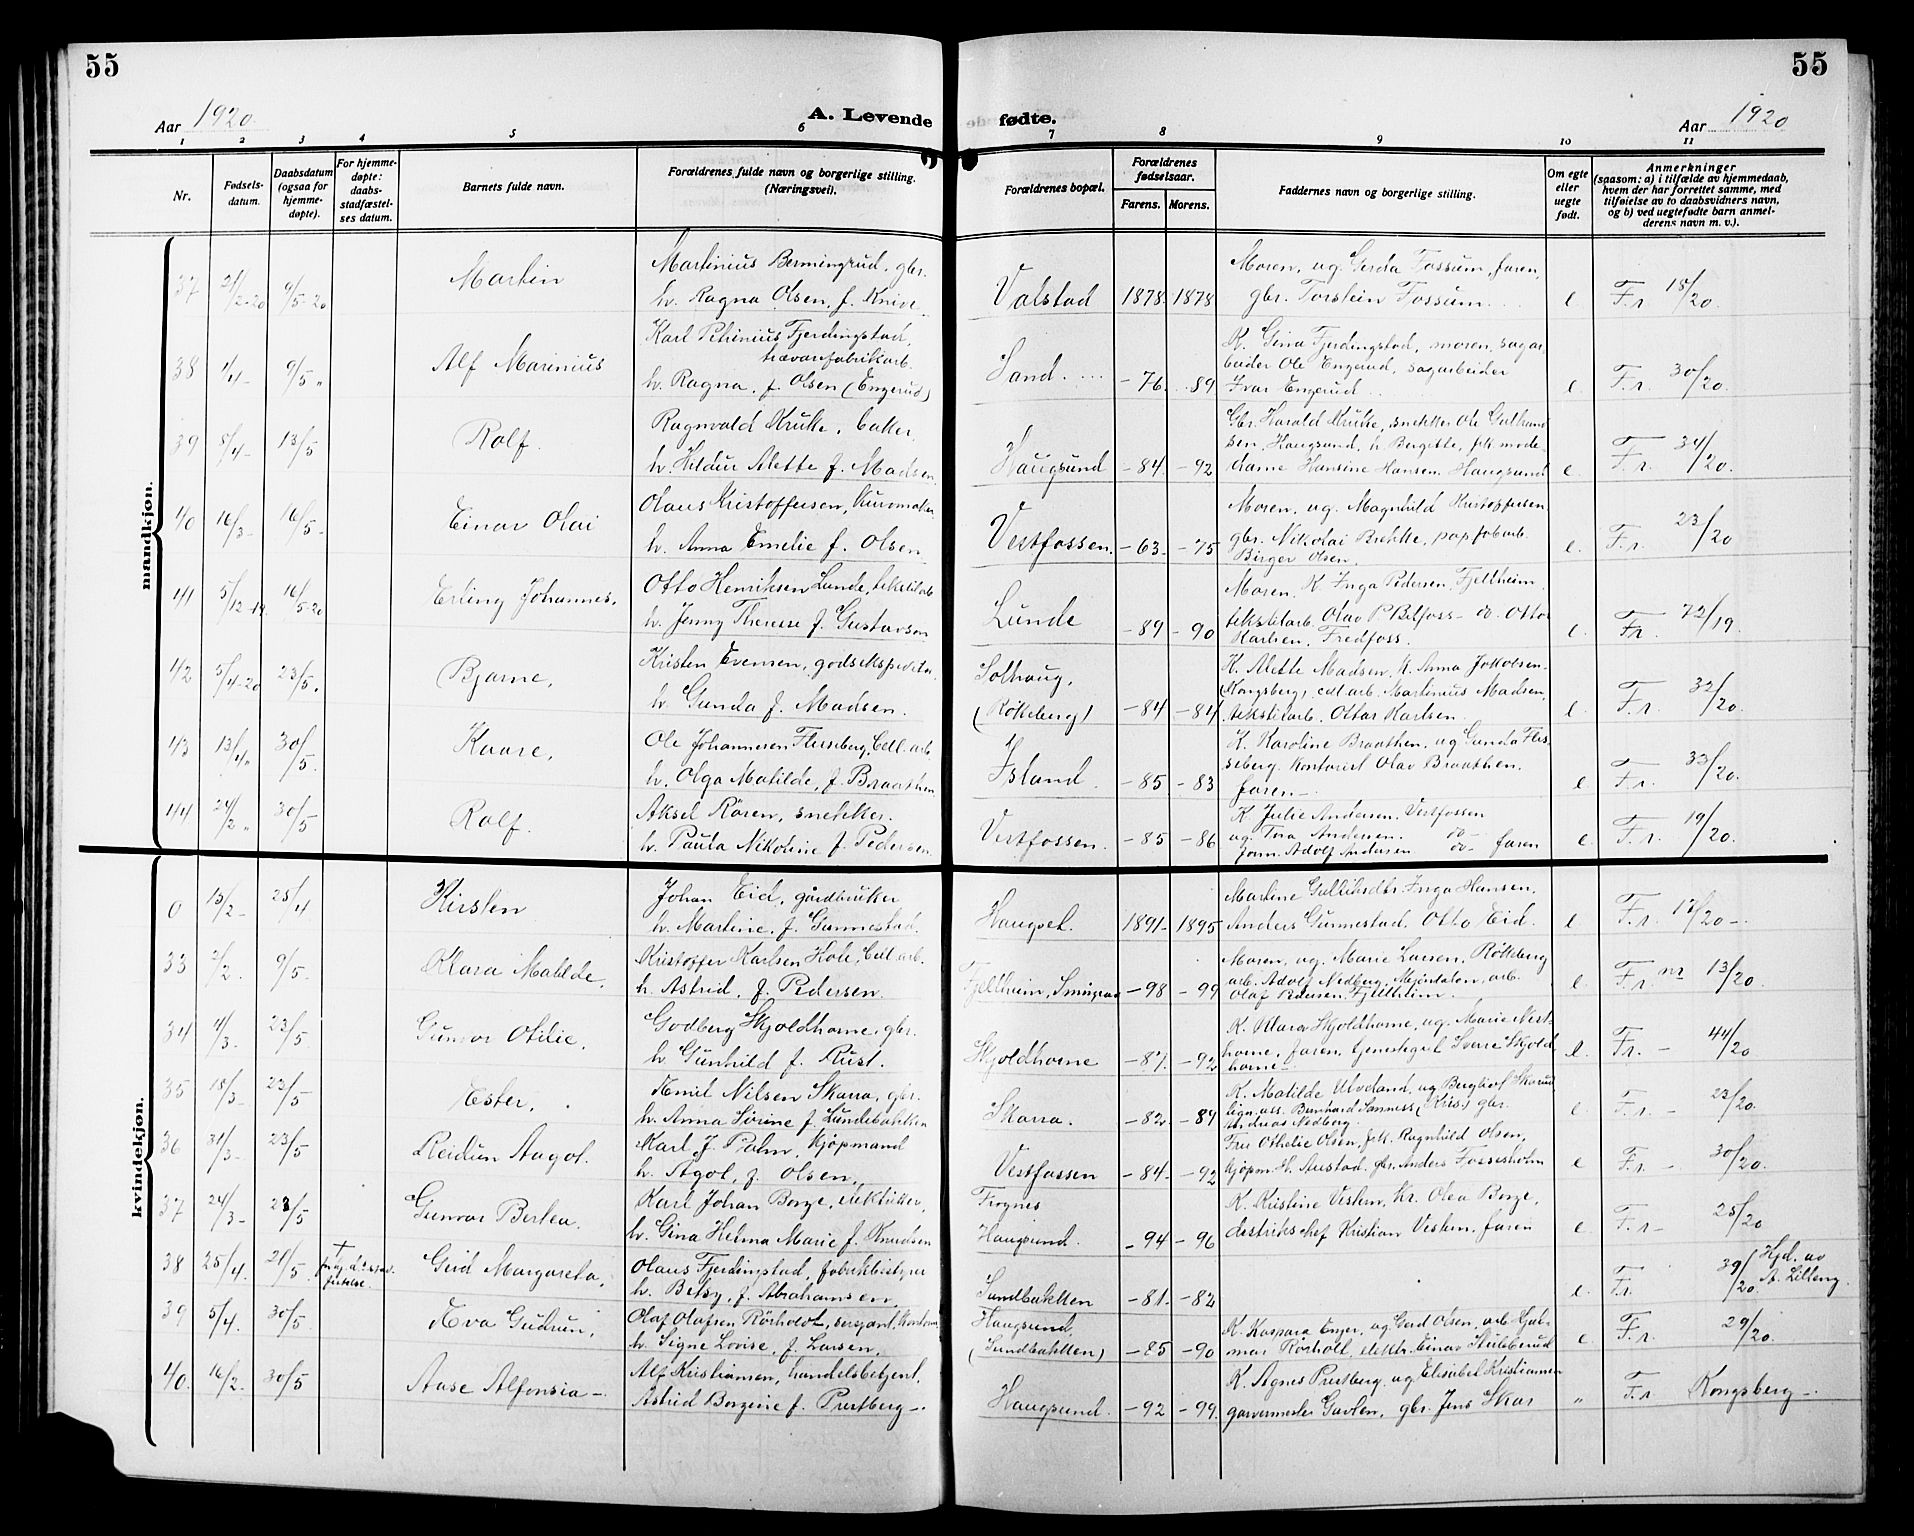 55
55
Aar 1920
A. Levende fødte.
Aar 1920
1 2 3 4 5 6 7 8 9 10 11
Nr.
Fødsels-
datum.
Daabsdatum
(ogsaa for
hjemme-
døpte).
For hjemme-
døpte:
daabs-
stadfæstel-
ses datum.
Barnets fulde navn.
Forældrenes fulde navn og borgerlige stilling.
(Næringsvei).
Forældrenes bopæl.
Forældrenes
fødselsaar.
Farens. Morens.
Faddernes navn og borgerlige stilling.
Om egte
eller
uegte
født.
Anmerkninger
(saasom: a) i tilfælde av hjemmedaab,
hvem der har forrettet samme, med
tilføielse av to daabsvidners navn,
og b) ved uegtefødte barn anmel-
derens navn m. v.).
mandkjøn.
37 21/2-20 9/5-20 Martin
Martinius Bermingrud, gbr.
h. Ragna Olsen, f. Knive
Valstad 1878- 1878
Moren, ug. Gerda Fossum, faren,
gbr. Torstein Fossum.
e. F.r. 18/20.
38 1/4- 9/5 " Alf Marinius
Karl Petrinius Fjerdingstad,
trævarefabrikarb.
h. Ragna, f. Olsen (Engerud)
Sand. -76. -89
K. Gina Fjerdingstad, moren, sagar-
beider Ole Engerud, sagarbeider
Ivar Engerud
e. F.r. 30/20.
39 5/4- 13/5 Rolf.
Ragnvald Kruke, baker.
h. Hildur Alette f. Madsen.
Haugsund -84. -92
Gbr. Harald Kruke, snekker Ole Gulbrand-
sen, Haugsund, h. Bergitte, frk. mode-
dame Hansine Hansen. Haugsund
e. F.r. 34/20.
40 16/3- 16/5- Einar Olai
Olaus Kristoffersen,
h. Anna Emelie f. Olsen
Vestfossen. -63. -75
Moren, ug. Magnhild Kristoffersen
gbr. Nikolai Brekke, papfabarb.
Birger Olsen.
e. F.r. 23/20
41 5/12-19. 16/5-20 Erling Johannes.
Otto Henriksen Lunde, tekstilarb.
h. Jenny Therese f. Gustavson
Lunde -89 -90
Moren, K. Inga Pedersen, Fjellheim
tekstilarb. Olav P. Bilfoss- do. Otto
Karlsen, Fredfoss.
e. Fr. 72/19.
42 5/4-20 23/5. Bjarne,
Kristen Evensen, godsekspeditør
h. Gunda f. Madsen.
Solhaug,
(Røkeberg) -84 -84
K. Alette Madsen, K. Anna Jakobsen
Kongsberg, cell.arb. Martinius Madsen,
tekstilarb. Ottar Karlsen.
e. F.r. 32/20.
43 13/4" 30/5. Kaare,
Ole Johannesen Flesseberg, Cell.arb.
h. Olga Matilde, f. Braathen
Island. -85 -83
K. Karoline Braathen, ug Gunda Fles-
seberg, kontorist Olav Braathen.
faren-
e. F.r. 33/20.
44 24/2 " 30/5 Rolf.
Aksel Røren, snekker.
h. Paula Nikoline f. Pedersen.
Vestfossen. -85 -86
K. Julie Andersen. Vestfossen
ug. Tora Andersen. do-
Adolf Andersen do- faren
e. F.r. 19/20.
kvindekjøn.
0 15/2- 25/4 Kirsten
Johan Eid, gårdbruker
h. Martine, f. Gunnestad.
Haugset. 1891- 1895
Martine Gulliksdtr. Inga Hansen,
Anders Gunnestad, Otto Eid.
e F.r. 17/20-
33 2/2. 9/5- Klara Matilde,
Kristoffer Karlsen Hole, Cell.arb.
h. Astrid, f. Pedersen.
Fjellheim, -98 -99
Moren, ug. Marie Larsen, Røkeberg
arb. Adolf Nedberg, Mjøndalen, arb.
Olaf Pedersen, Fjellheim.
e. F.r. nr 13/20.
34 4/3- 23/5. Gunvor Otilie,
Godberg Skjoldhorne, gbr.
h. Gunhild f. Rust.
Skjoldhorne -87. -92
K. Klara Skjoldhorne, ug. Marie Vest-
horne, faren, Sverre Skjold-
horne-
e. Fr. - 44/20
35 18/3- 23/5 Ester,
Emil Nilsen Skarra, gbr.
h. Anna Sørine f. Lundebakken
Skarra. -82. -84
K. Matilde Ulveland, ug Bergliot Skarud
Bernhard gbr.
Andreas Nedberg.
e F.r. - 23/20.
36 31/3- 23/5 Reidun Aagot.
Karl J. Palm, kjøpmand
h. Agot, f. Olsen,
Vestfossen -84. -92
Fru Othelie Olsen, frk. Ragnhild Olsen,
kjøpm. H. Austad. gbr. Anders Fossesholm
e F.r. - 30/20.
37 24/3- 23/5 Gunvor Bertea.
Karl Johan Borge, elektriker,
h. Gina Helma Marie f. Knudsen
Frognes
Haugsund. -94 -96
K. Kristine Vestern, Kr. Olea Borge,
destrikschef Kristian Vestern, faren
e. F.r. - 25/20
38 25/4. 21/5. † Gerd Margareta,
Olaus Fjerdingstad, fabrikbestyrer
h. Betsy, f. Abrahamsen,
Sundbakken -81. -82
e. Fr. 39/20. Hjd. av
A. Lilleng.
39 5/4. 30/5. Eva Gudrun,
Olaf Olafsen Rørholdt, sergeant,
h. Signe Lovise, f. Larsen,
Haugsund,
(Sundbakken) -85 -90
K. Kaspara Enger, ug Gerd Olsen, arb. Hjal-
mar Rørholt, elektr. Einar Stubberud
e. F.r. 29/20.
40. 16/2. 30/5 Aase Alfonsia-
Alf Kristiansen, handelsbetjent,
Astrid Borgine f. Prestberg-.
Haugsund. -92 -99.
K. Agnes Prestberg, ug Elisabet Kristiansen
garvermester Gavlen, gbr. Jens Skar
" F.r. Kongsberg-.